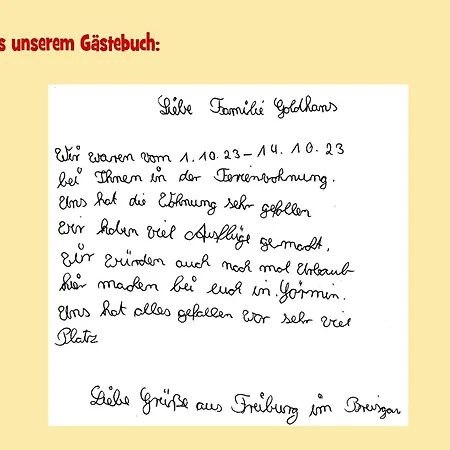 s unserem Gästebuch:
Liebe Familie Goldhans
Wir waren vom 1.10.23-14.10.23
bei Ihnen in der Ferienwohnung.
Uns hat die Wohnung sehr gefallen
Wir haben viel Ausflüge gemacht.
Wir würden auch noch mal Urlaub
hier machen bei euch in Görmin.
Uns hat alles gefallen war sehr viel
Platz
Liebe Grüße aus Freiburg im Breisgau